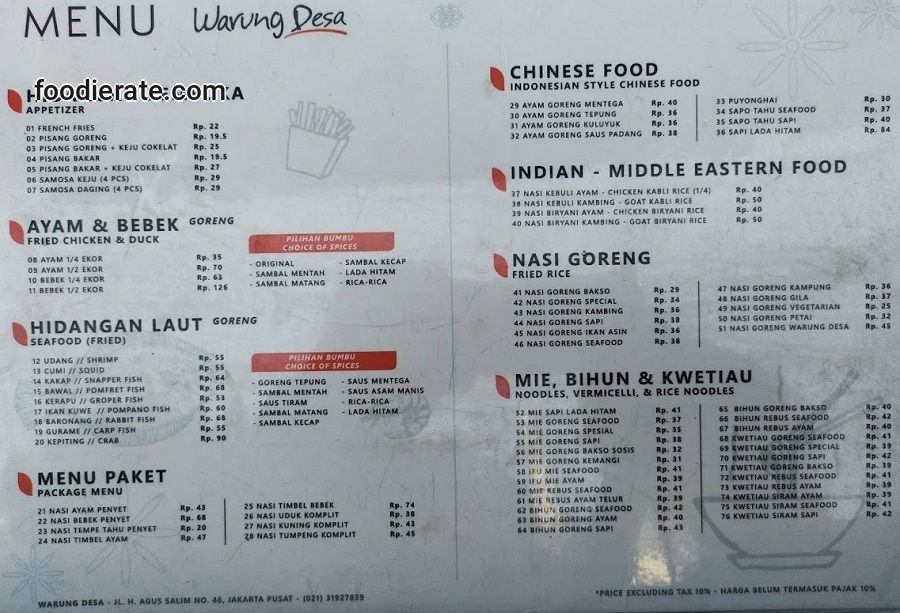 MENU Warung Desa
foodierate.com
APPETIZER
01 FRENCH FRIES Rp. 22
02 PISANG GORENG Rp. 19.5
03 PISANG GORENG + KEJU COKELAT Rp. 25
04 PISANG BAKAR Rp. 19.5
05 PISANG BAKAR + KEJU COKELAT Rp. 27
06 SAMOSA KEJU (4 PCS) Rp. 29
07 SAMOSA DAGING (4 PCS) Rp. 29
AYAM & BEBEK GORENG
FRIED CHICKEN & DUCK
08 AYAM 1/4 EKOR Rp. 35
09 AYAM 1/2 EKOR Rp. 70
10 BEBEK 1/4 EKOR Rp. 63
11 BEBEK 1/2 EKOR Rp. 126
PILIHAN BUMBU
CHOICE OF SPICES
- ORIGINAL - SAMBAL KECAP
- SAMBAL MENTAH - LADA HITAM
- SAMBAL MATANG - RICA-RICA
HIDANGAN LAUT GORENG
SEAFOOD (FRIED)
12 UDANG // SHRIMP Rp. 55
13 CUMI // SQUID Rp. 55
14 KAKAP // SNAPPER FISH Rp. 64
15 BAWAL // POMFRET FISH Rp. 68
16 KERAPU // GROPER FISH Rp. 53
17 IKAN KUWE // POMPANO FISH Rp. 60
18 BARONANG // RABBIT FISH Rp. 68
19 GURAME // CARP FISH Rp. 55
20 KEPITING // CRAB Rp. 90
PILIHAN BUMBU
CHOICE OF SPICES
- GORENG TEPUNG - SAUS MENTEGA
- SAMBAL MENTAH - SAUS ASAM MANIS
- SAUS TIRAM - RICA-RICA
- SAMBAL MATANG - LADA HITAM
- SAMBAL KECAP
MENU PAKET
PACKAGE MENU
21 NASI AYAM PENYET Rp. 43
22 NASI BEBEK PENYET Rp. 68
23 NASI TEMPE TAHU PENYET Rp. 20
24 NASI TIMBEL AYAM Rp. 47
25 NASI TIMBEL BEBEK Rp. 74
26 NASI UDUK KOMPLIT Rp. 38
27 NASI KUNING KOMPLIT Rp. 43
28 NASI TUMPENG KOMPLIT Rp. 45
WARUNG DESA - JL. H. AGUS SALIM NO. 46, JAKARTA PUSAT - (021) 31927839
CHINESE FOOD
INDONESIAN STYLE CHINESE FOOD
29 AYAM GORENG MENTEGA Rp. 40
30 AYAM GORENG TEPUNG Rp. 36
31 AYAM GORENG KULUYUK Rp. 36
32 AYAM GORENG SAUS PADANG Rp. 38
33 PUYONGHAI Rp. 30
34 SAPO TAHU SEAFOOD Rp. 37
35 SAPO TAHU SAPI Rp. 40
36 SAPI LADA HITAM Rp. 84
INDIAN - MIDDLE EASTERN FOOD
37 NASI KEBULI AYAM - CHICKEN KABLI RICE (1/4) Rp. 40
38 NASI KEBULI KAMBING - GOAT KABLI RICE Rp. 50
39 NASI BIRYANI AYAM - CHICKEN BIRYANI RICE Rp. 40
40 NASI BIRYANI KAMBING - GOAT BIRYANI RICE Rp. 50
NASI GORENG
FRIED RICE
41 NASI GORENG BAKSO Rp. 29
42 NASI GORENG SPECIAL Rp. 34
43 NASI GORENG KAMBING Rp. 36
44 NASI GORENG SAPI Rp. 38
45 NASI GORENG IKAN ASIN Rp. 36
46 NASI GORENG SEAFOOD Rp. 38
47 NASI GORENG KAMPUNG Rp. 36
48 NASI GORENG GILA Rp. 37
49 NASI GORENG VEGETARIAN Rp. 25
50 NASI GORENG PETAI Rp. 32
51 NASI GORENG WARUNG DESA Rp. 45
MIE, BIHUN & KWETIAU
NOODLES, VERMICELLI, & RICE NOODLES
52 MIE SAPI LADA HITAM Rp. 41
53 MIE GORENG SEAFOOD Rp. 37
54 MIE GORENG SPESIAL Rp. 35
55 MIE GORENG SAPI Rp. 38
56 MIE GORENG BAKSO SOSIS Rp. 32
57 MIE GORENG KEMANGI Rp. 31
58 IFU MIE SEAFOOD Rp. 41
59 IFU MIE AYAM Rp. 39
60 MIE REBUS SEAFOOD Rp. 41
61 MIE REBUS AYAM TELUR Rp. 39
62 BIHUN GORENG SEAFOOD Rp. 42
63 BIHUN GORENG AYAM Rp. 40
64 BIHUN GORENG SAPI Rp. 43
65 BIHUN GORENG BAKSO Rp. 40
66 BIHUN REBUS SEAFOOD Rp. 42
67 BIHUN REBUS AYAM Rp. 40
68 KWETIAU GORENG SEAFOOD Rp. 41
69 KWETIAU GORENG SPECIAL Rp. 39
70 KWETIAU GORENG SAPI Rp. 42
71 KWETIAU GORENG BAKSO Rp. 39
72 KWETIAU REBUS SEAFOOD Rp. 41
73 KWETIAU REBUS AYAM Rp. 39
74 KWETIAU SIRAM AYAM Rp. 39
75 KWETIAU SIRAM SEAFOOD Rp. 41
76 KWETIAU SIRAM SAPI Rp. 42
*PRICE EXCLUDING TAX 10% - HARGA BELUM TERMASUK PAJAK 10%